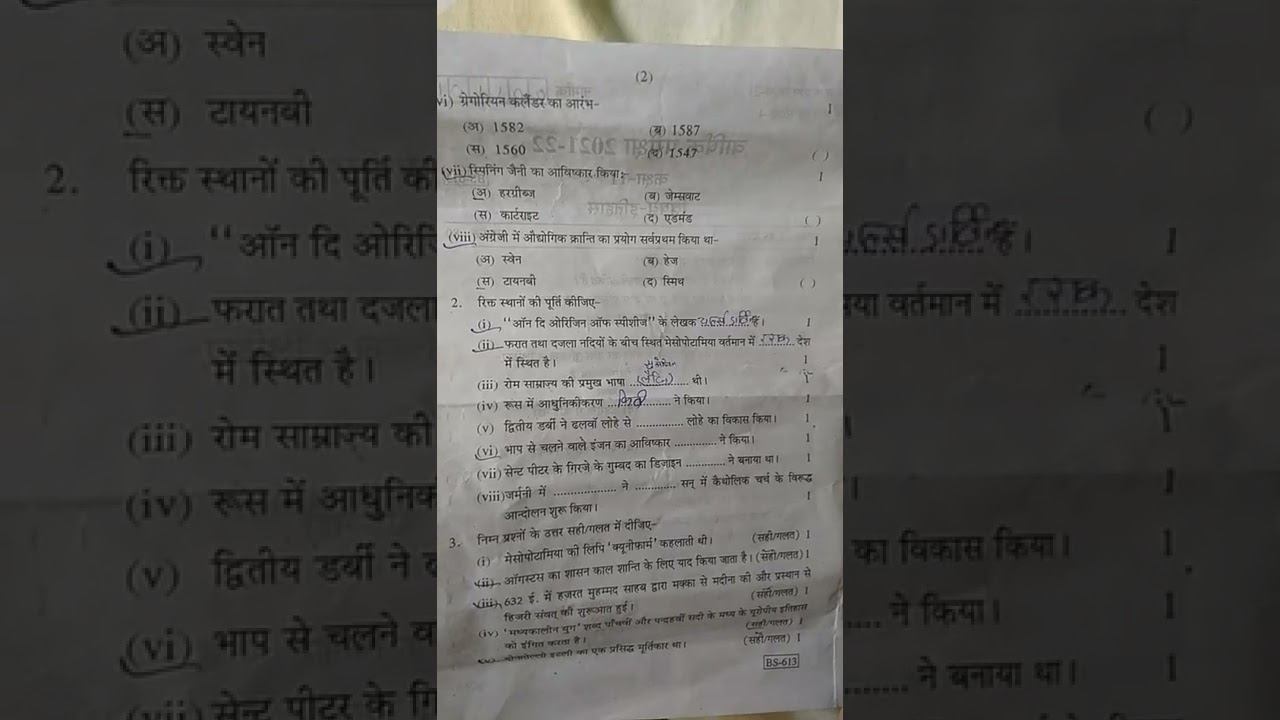 (2)
vi) ग्रेगोरियन कलैंडर का आरंभ- 1
(अ) 1582 (ब) 1587
(स) 1560 (द) 1547 ( )
(vii) स्पिनिंग जैनी का आविष्कार किया:- 1
(अ) हरग्रीब्ज (ब) जेम्सवाट
(स) कार्टराइट (द) एडमंड ( )
(viii) अंग्रेजी में औद्योगिक क्रान्ति का प्रयोग सर्वप्रथम किया था- 1
(अ) स्वेन (ब) हेज
(स) टायनबी (द) स्मिथ ( )
2. रिक्त स्थानों की पूर्ति कीजिए-
(i) "ऑन दि ओरिजिन ऑफ स्पीशीज" के लेखक चार्ल्स डार्विन है। 1
(ii) फरात तथा दजला नदियों के बीच स्थित मेसोपोटामिया वर्तमान में ........ देश
में स्थित है। 1
(iii) रोम साम्राज्य की प्रमुख भाषा ............ थी। 1
(iv) रूस में आधुनिकीकरण ............ ने किया। 1
(v) द्वितीय डर्बी ने ढलवाँ लोहे से ............... लोहे का विकास किया। 1
(vi) भाप से चलने वाले इंजन का आविष्कार ............. ने किया। 1
(vii) सेन्ट पीटर के गिरजे के गुम्बद का डिज़ाइन ............ ने बनाया था। 1
(viii) जर्मनी में .................... ने ............. सन् में कैथोलिक चर्च के विरूद्ध
आन्दोलन शुरू किया। 1
3. निम्न प्रश्नों के उत्तर सही/गलत में दीजिए-
(i) मेसोपोटामिया की लिपि 'क्यूनीफार्म' कहलाती थी। (सही/गलत) 1
(ii) ऑगस्टस का शासन काल शान्ति के लिए याद किया जाता है। (सही/गलत) 1
(iii) 632 ई. में हजरत मुहम्मद साहब द्वारा मक्का से मदीना की और प्रस्थान से
हिजरी संवत् की शुरूआत हुई। (सही/गलत) 1
(iv) 'मध्यकालीन युग' शब्द पाँचवीं और पन्द्रहवीं सदी के मध्य के यूरोपीय इतिहास
को इंगित करता है। (सही/गलत) 1
इटली का एक प्रसिद्ध मूर्तिकार था। (सही/गलत) 1
BS-613